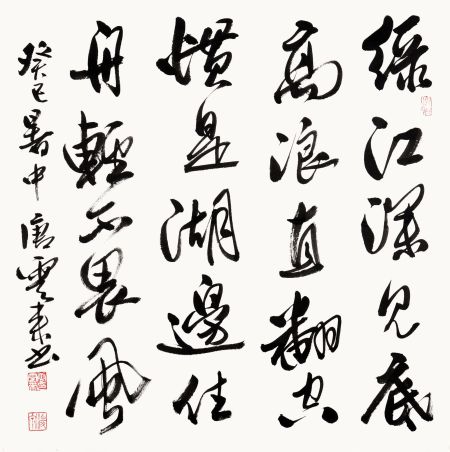 綠江深見底
高浪直翻空
慣是湖邊住
舟輕不畏風
癸巳暑中唐雲來书